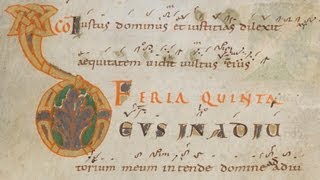 CO Iustus dominus et iustitias dilexit
aequitatem vidit vultus eius
FERIA QUINTA
DEUS IN ADIU
torium meum intende domine ad adiu